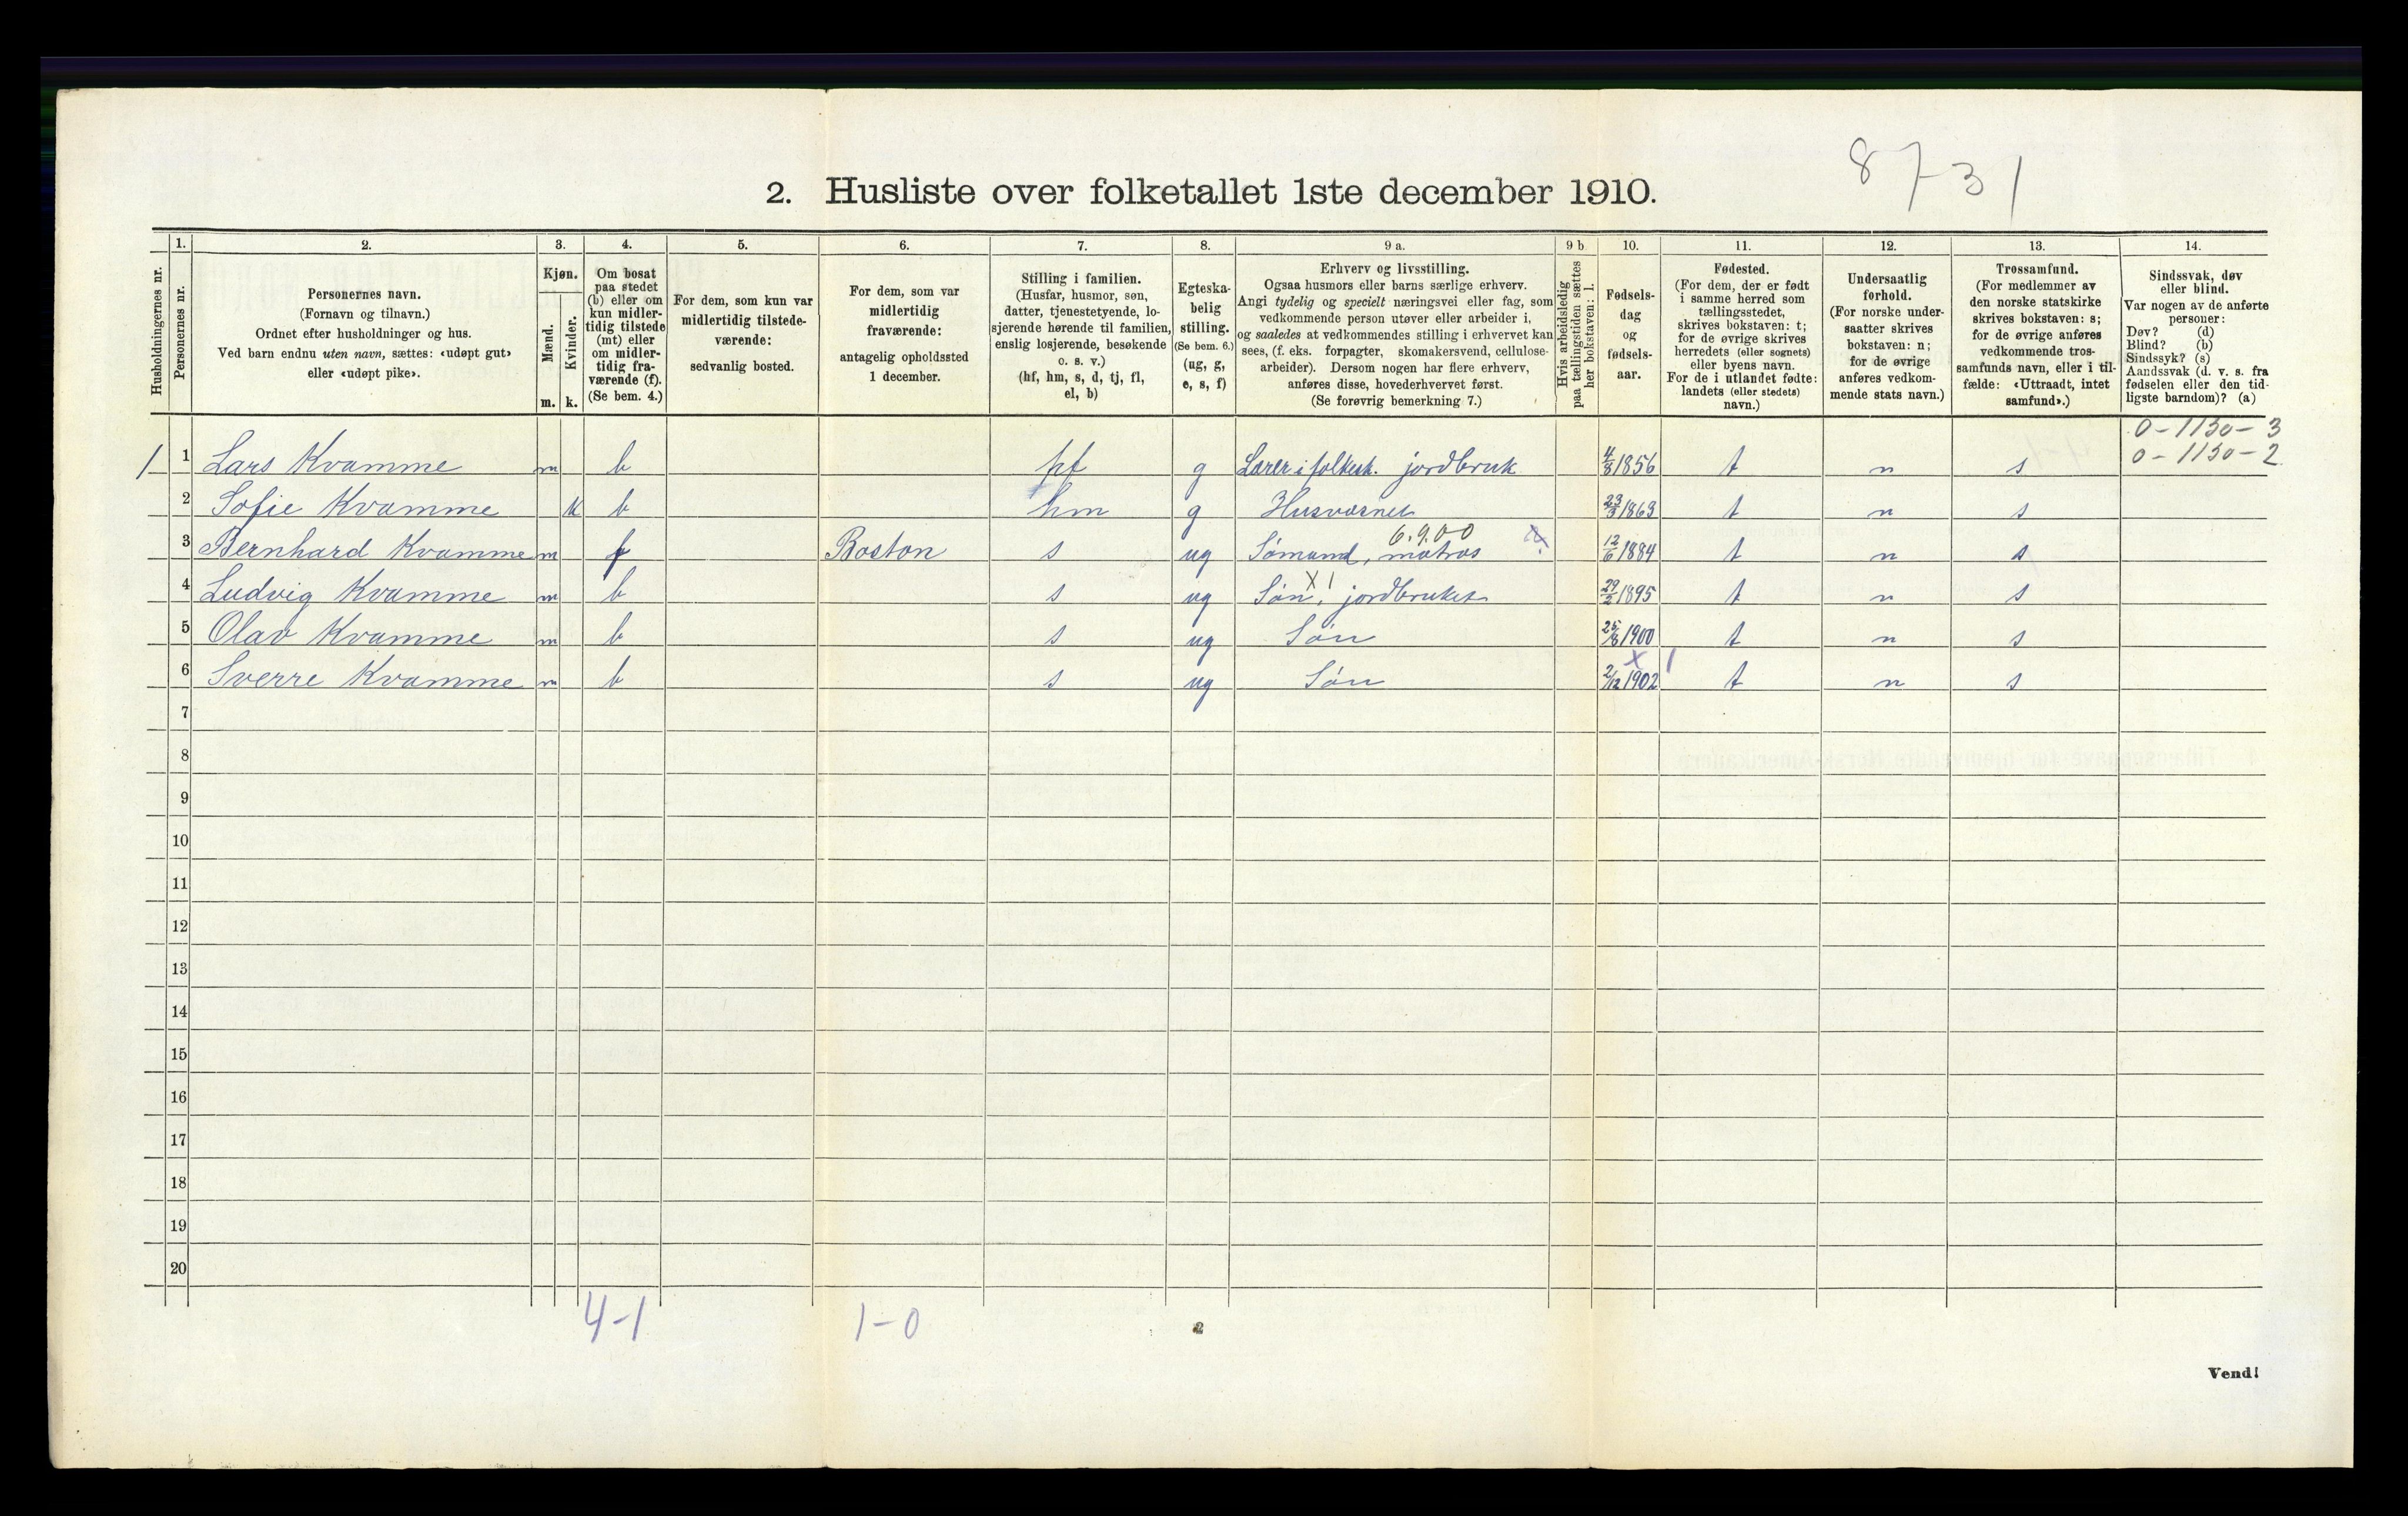 8731
2. Husliste over folketallet 1ste december 1910.
Husholdningernes nr.
1. Personernes nr.
2. Personernes navn.
(Fornavn og tilnavn.)
Ordnet efter husholdninger og hus.
Ved barn endnu uten navn, sættes: «udøpt gut»
eller «udøpt pike».
3. Kjøn.
Mænd. m.
Kvinder. k.
4. Om bosat
paa stedet
(b) eller om
kun midler-
tidig tilstede
(mt) eller
om midler-
tidig fra-
værende (f).
(Se bem. 4.)
5. For dem, som kun var
midlertidig tilstede-
værende:
sedvanlig bosted.
6. For dem, som var
midlertidig
fraværende:
antagelig opholdssted
1 december.
7. Stilling i familien.
(Husfar, husmor, søn,
datter, tjenestetyende, lo-
sjerende hørende til familien,
enslig losjerende, besøkende
o. s. v.)
(hf, hm, s, d, tj, fl,
el, b)
8. Egteska-
belig
stilling.
(Se bem. 6.)
(ug, g,
e, s, f)
9 a. Erhverv og livsstilling.
Ogsaa husmors eller barns særlige erhverv.
Angi tydelig og specielt næringsvei eller fag, som
vedkommende person utøver eller arbeider i,
og saaledes at vedkommendes stilling i erhvervet kan
sees, (f. eks. forpagter, skomakersvend, cellulose-
arbeider). Dersom nogen har flere erhverv,
anføres disse, hovederhvervet først.
(Se forøvrig bemerkning 7.)
9 b Hvis arbeidsledig
paa tællingstiden sættes
her bokstaven: l.
10. Fødsels-
dag
og
fødsels-
aar.
11. Fødested.
(For dem, der er født
i samme herred som
tællingsstedet,
skrives bokstaven: t;
for de øvrige skrives
herredets (eller sognets)
eller byens navn.
For de i utlandet fødte:
landets (eller stedets)
navn.)
12. Undersaatlig
forhold.
(For norske under-
saatter skrives
bokstaven: n;
for de øvrige
anføres vedkom-
mende stats navn.)
13. Trossamfund.
(For medlemmer av
den norske statskirke
skrives bokstaven: s;
for de øvrige anføres
vedkommende tros-
samfunds navn, eller i til-
fælde: «Uttraadt, intet
samfund».)
14. Sindssvak, døv
eller blind.
Var nogen av de anførte
personer:
Døv? (d)
Blind? (b)
Sindssyk? (s)
Aandssvak (d. v. s. fra
fødselen eller den tid-
ligste barndom)? (a)
0-1130-3
1 1 Lars Kvamme m b hf g Lærer i folkesk. jordbruk 4/8 1856 t n s 0-1130-2
2 Sofie Kvamme k b hm g Husvæsnet 23/3 1863 t n s
6.9.00
3 Bernhard Kvamme m f Boston s ug Sømand, matros 12/6 1884 t n s
X 1
4 Ludvig Kvamme m b s ug Søn, jordbruket 29/2 1895 t n s
5 Olav Kvamme m b s ug Søn 25/8 1900 t n s
x 1
6 Sverre Kvamme m b s ug Søn 2/12 1902 t n s
7
8
9
10
11
12
13
14
15
16
17
18
19
20
4-1 1-0
2
Vend!